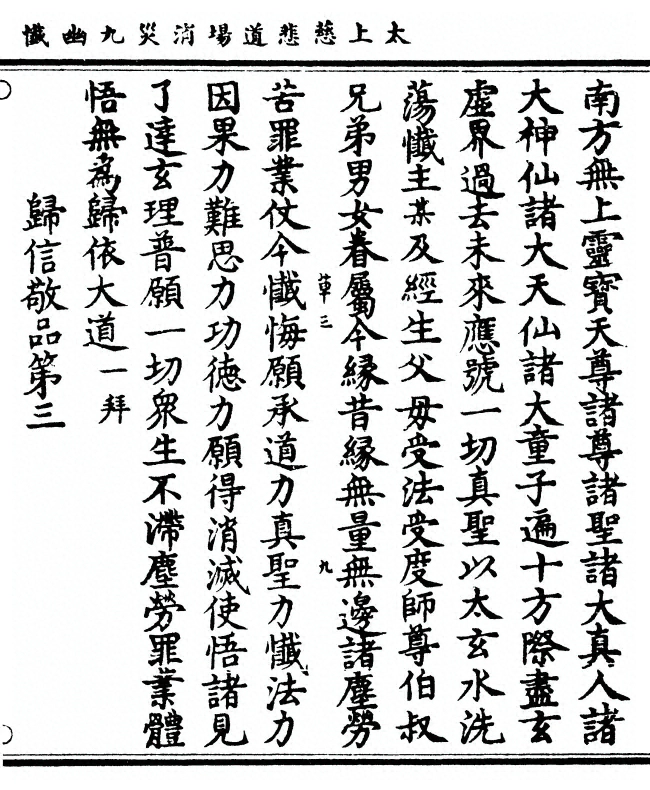 太上慈悲道場消災九幽懺
南方無上靈寶天尊諸尊諸聖諸大真人諸
大神仙諸大天仙諸大童子遍十方際盡玄
虛界過去未來應號一切真聖以太玄水洗
蕩懺主某及經生父母受法受度師尊伯叔
兄弟男女眷屬今緣昔緣無量無邊諸塵勞
草三
九
苦罪業仗今懺悔願承道力真聖力懺法力
因果力難思力功德力願得消滅使悟諸見
了達玄理普願一切眾生不滯塵勞罪業體
悟無為歸依大道一拜
歸信敬品第三